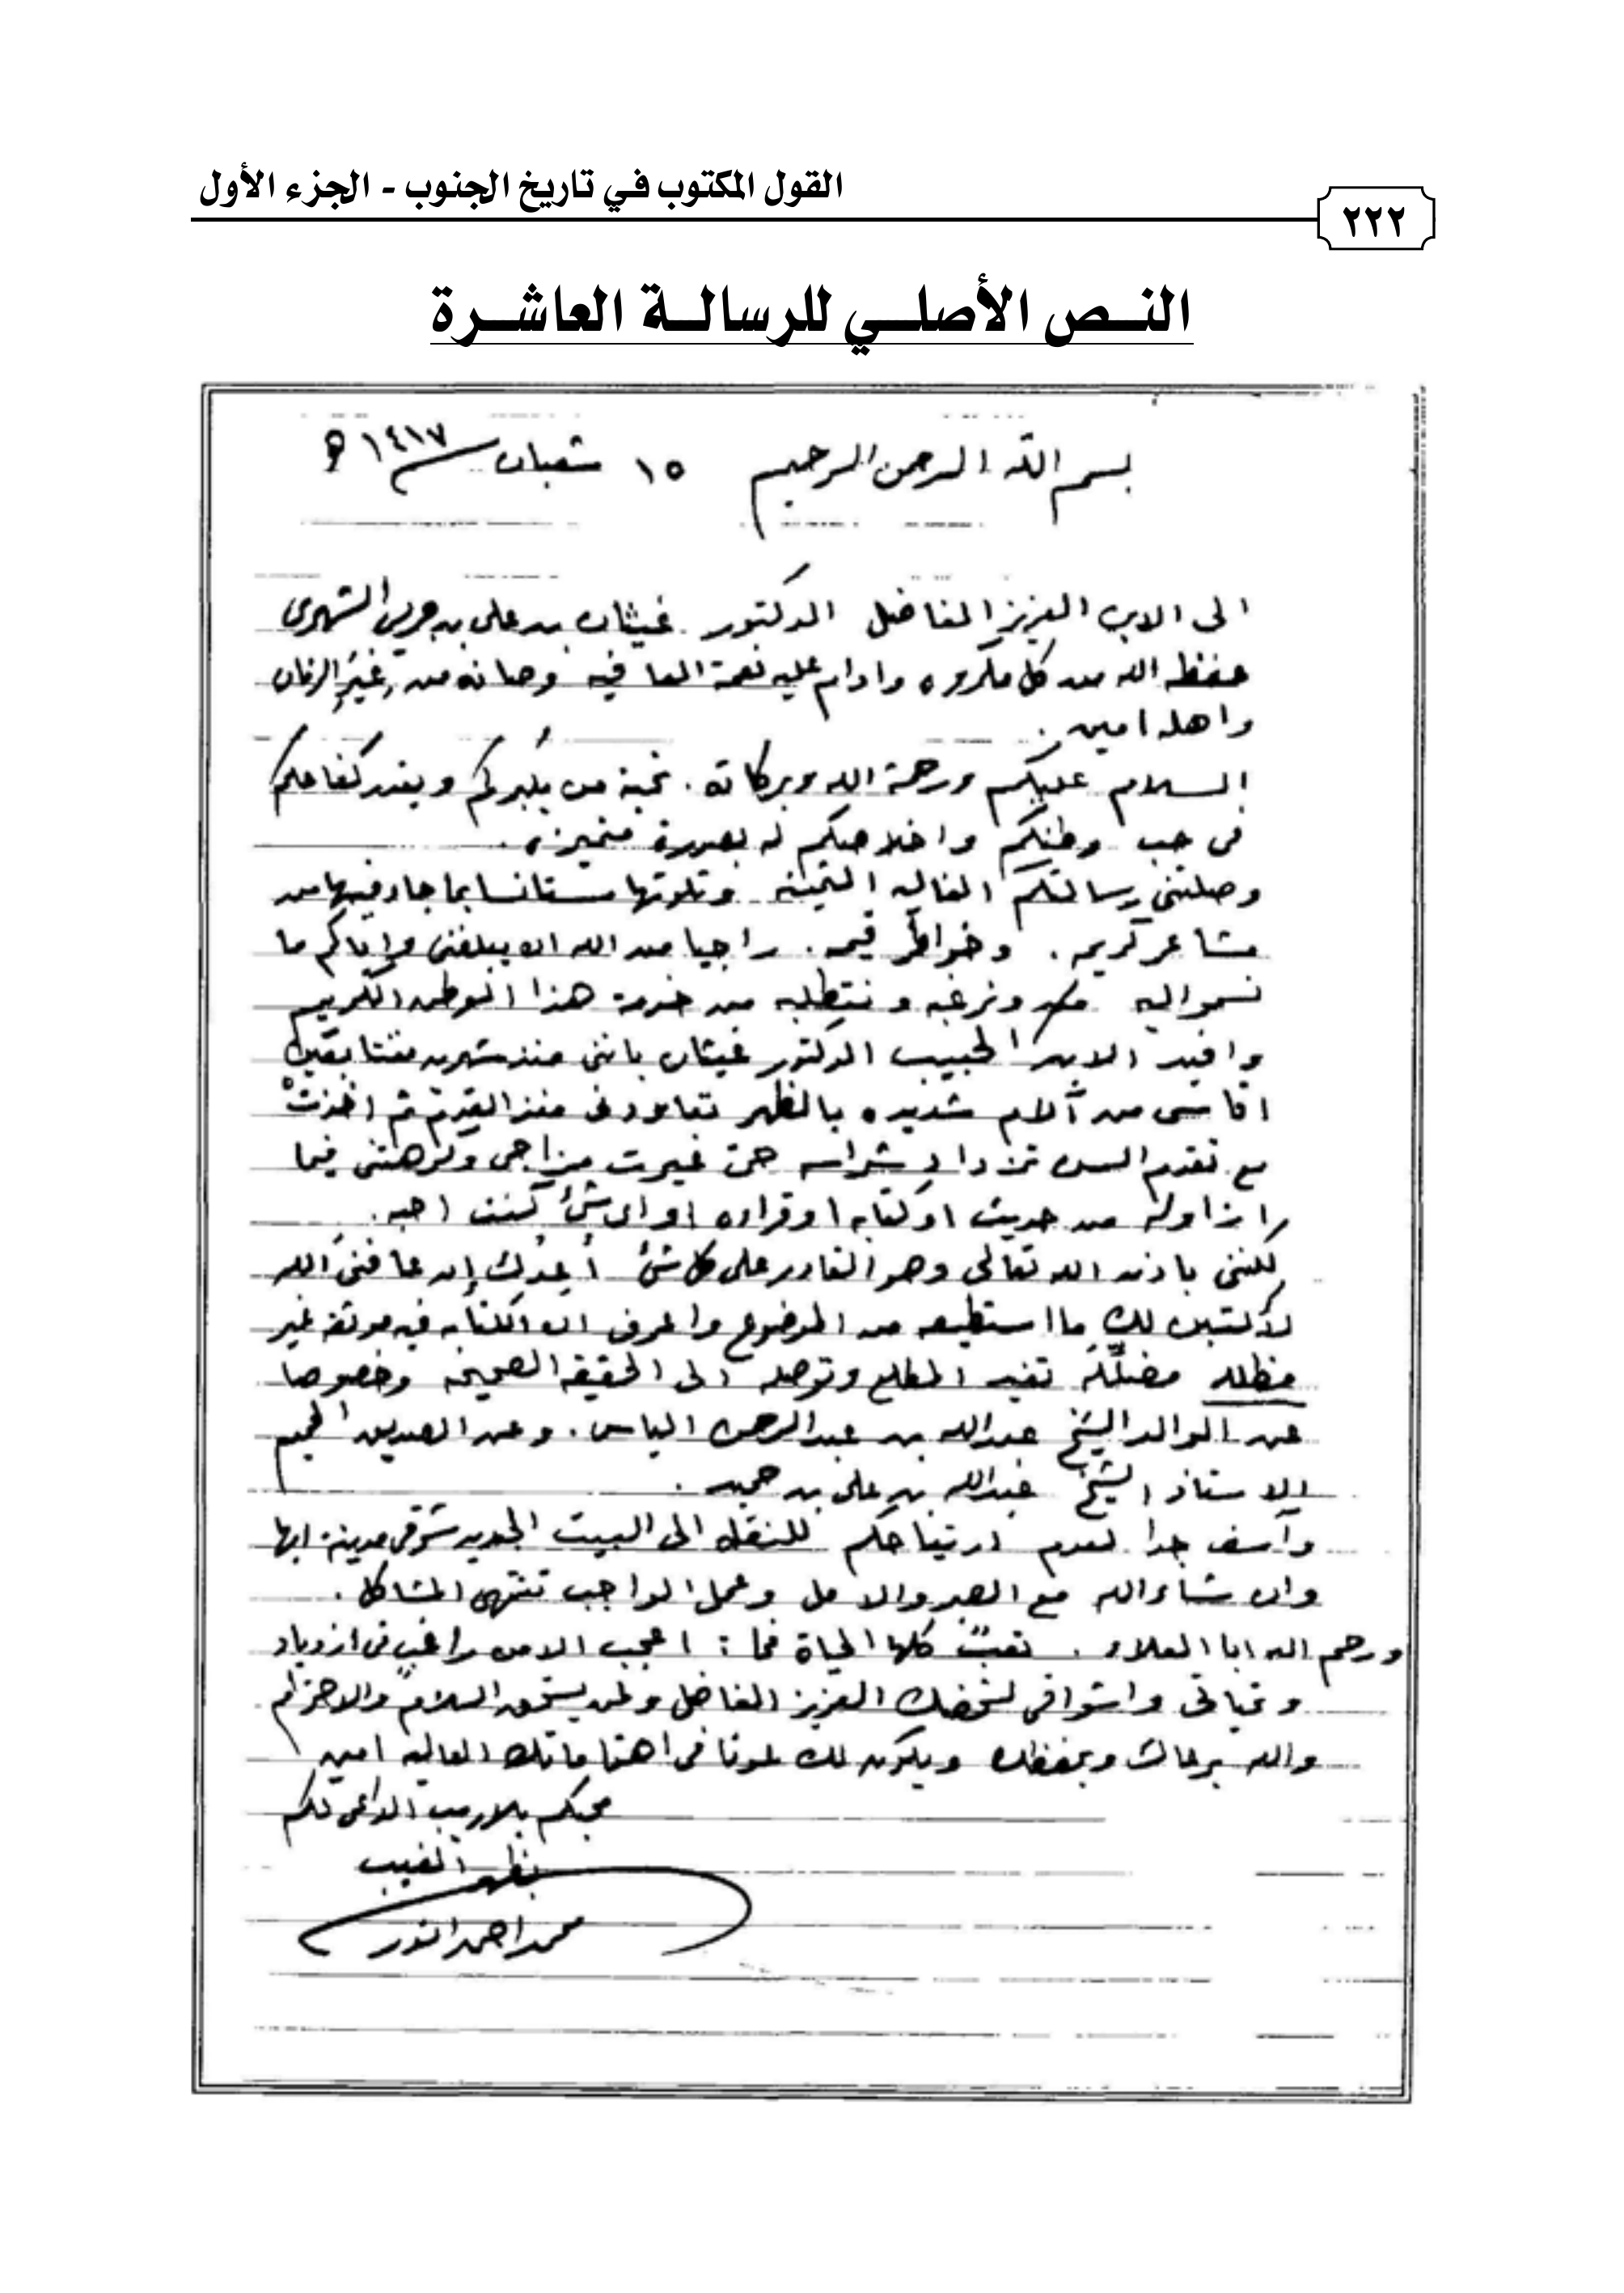 القول المكتوب في تاريخ الجنوب - الجزء الأول
٢٢٢
النص الأصلي للرسالة العاشرة
بسم الله الرحمن الرحيم ١٥ شعبان ١٤١٧ ه
الى الابن العزيز الفاضل الدكتور غيثان بن علي بن جريس الشهري
حفظه الله من كل مكروه وادام عليه نعمة العافيه وصانه من غِيَرِ الزمان
واهله امين .
السلام عليكم ورحمة الله وبركاته . تحية من يُكبركم ويقدر كفاحكم
في حب وطنكم واخلاصكم له بصورة متميزه .
وصلتني رسالتكم الغاليه الثمينه وتلوتها مستانسا بما جاء فيها من
مشاعر كريمه . وخواطر قيمه . راجيا من الله ان يبلغني واياكم ما
نسمو اليه ونرغبه ونتطلبه من خدمة هذا الوطن الكريم
وافيد الابن الحبيب الدكتور غيثان بانني منذ شهرين متتابعين
اقاسي من آلام شديده بالظهر تعاودني منذ القدم ثم اخذتْ
مع تقدم السن تزداد شراسه حتى غيرت مزاجي وكرهتني فيما
ازاوله من حديث او كتابه او قراءه او اي شئ كنت احبه .
لكنني باذن الله تعالى وهو القادر على كل شئ أعِدُك إن عافنى الله
لأكتبن لك ما استطيعه من الموضوع واعرف ان الكتابه فيه موثقه غير
مظلله مضلِّلَه تفيد المطلع وتوصله الى الحقيقه الصحيحه وخصوصا
عن الوالد الشيخ عبدالله بن عبدالرحمن الياس . وعن الصديق الحميم
الاستاذ الشيخ عبدالله بن علي بن حميد .
وآسف جدا لعدم ارتياحكم للنقله الى البيت الجديد شرقي مدينة ابها
وان شاء الله مع الصبر والامل وعمل الواجب تنتهي المشاكل .
ورحم الله ابا العلاء . تعبٌ كلها الحياة فما : اعجب الا من راغبٍ في ازدياد
وتحياتي واشواقي لشخصك العزيز الفاضل ولمن يستحق السلام والاحترام
والله يرعاك ويحفظك ويكون لك عونا في اهتماماتك العاليه امين
محبكم بلا ريب الداعي لكم
بظهر الغيب
محمد احمد انور